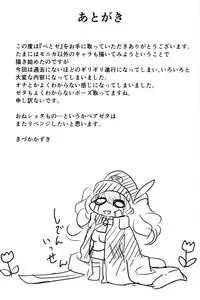 あとがき
この度は『べとぜ』をお手に取っていただきありがとうございます。
たまにはモニカ以外のキャラも描いてみようということで
描き始めたのですが
今回は過去にないほどのギリギリ進行になってしまい、いろいろと
大変な内容になってしまいました。
オチとかよくわからない感じになってしまいました。
ゼタもよくわからないポーズ取ってますね。
申し訳ないです。
おねショタもの…というかベアゼタは
またリベンジしたいと思います。
きづかかずき
しでん
いっせん